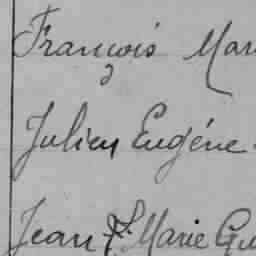 François Mar
Julien Eugéne
Jean Marie Gu